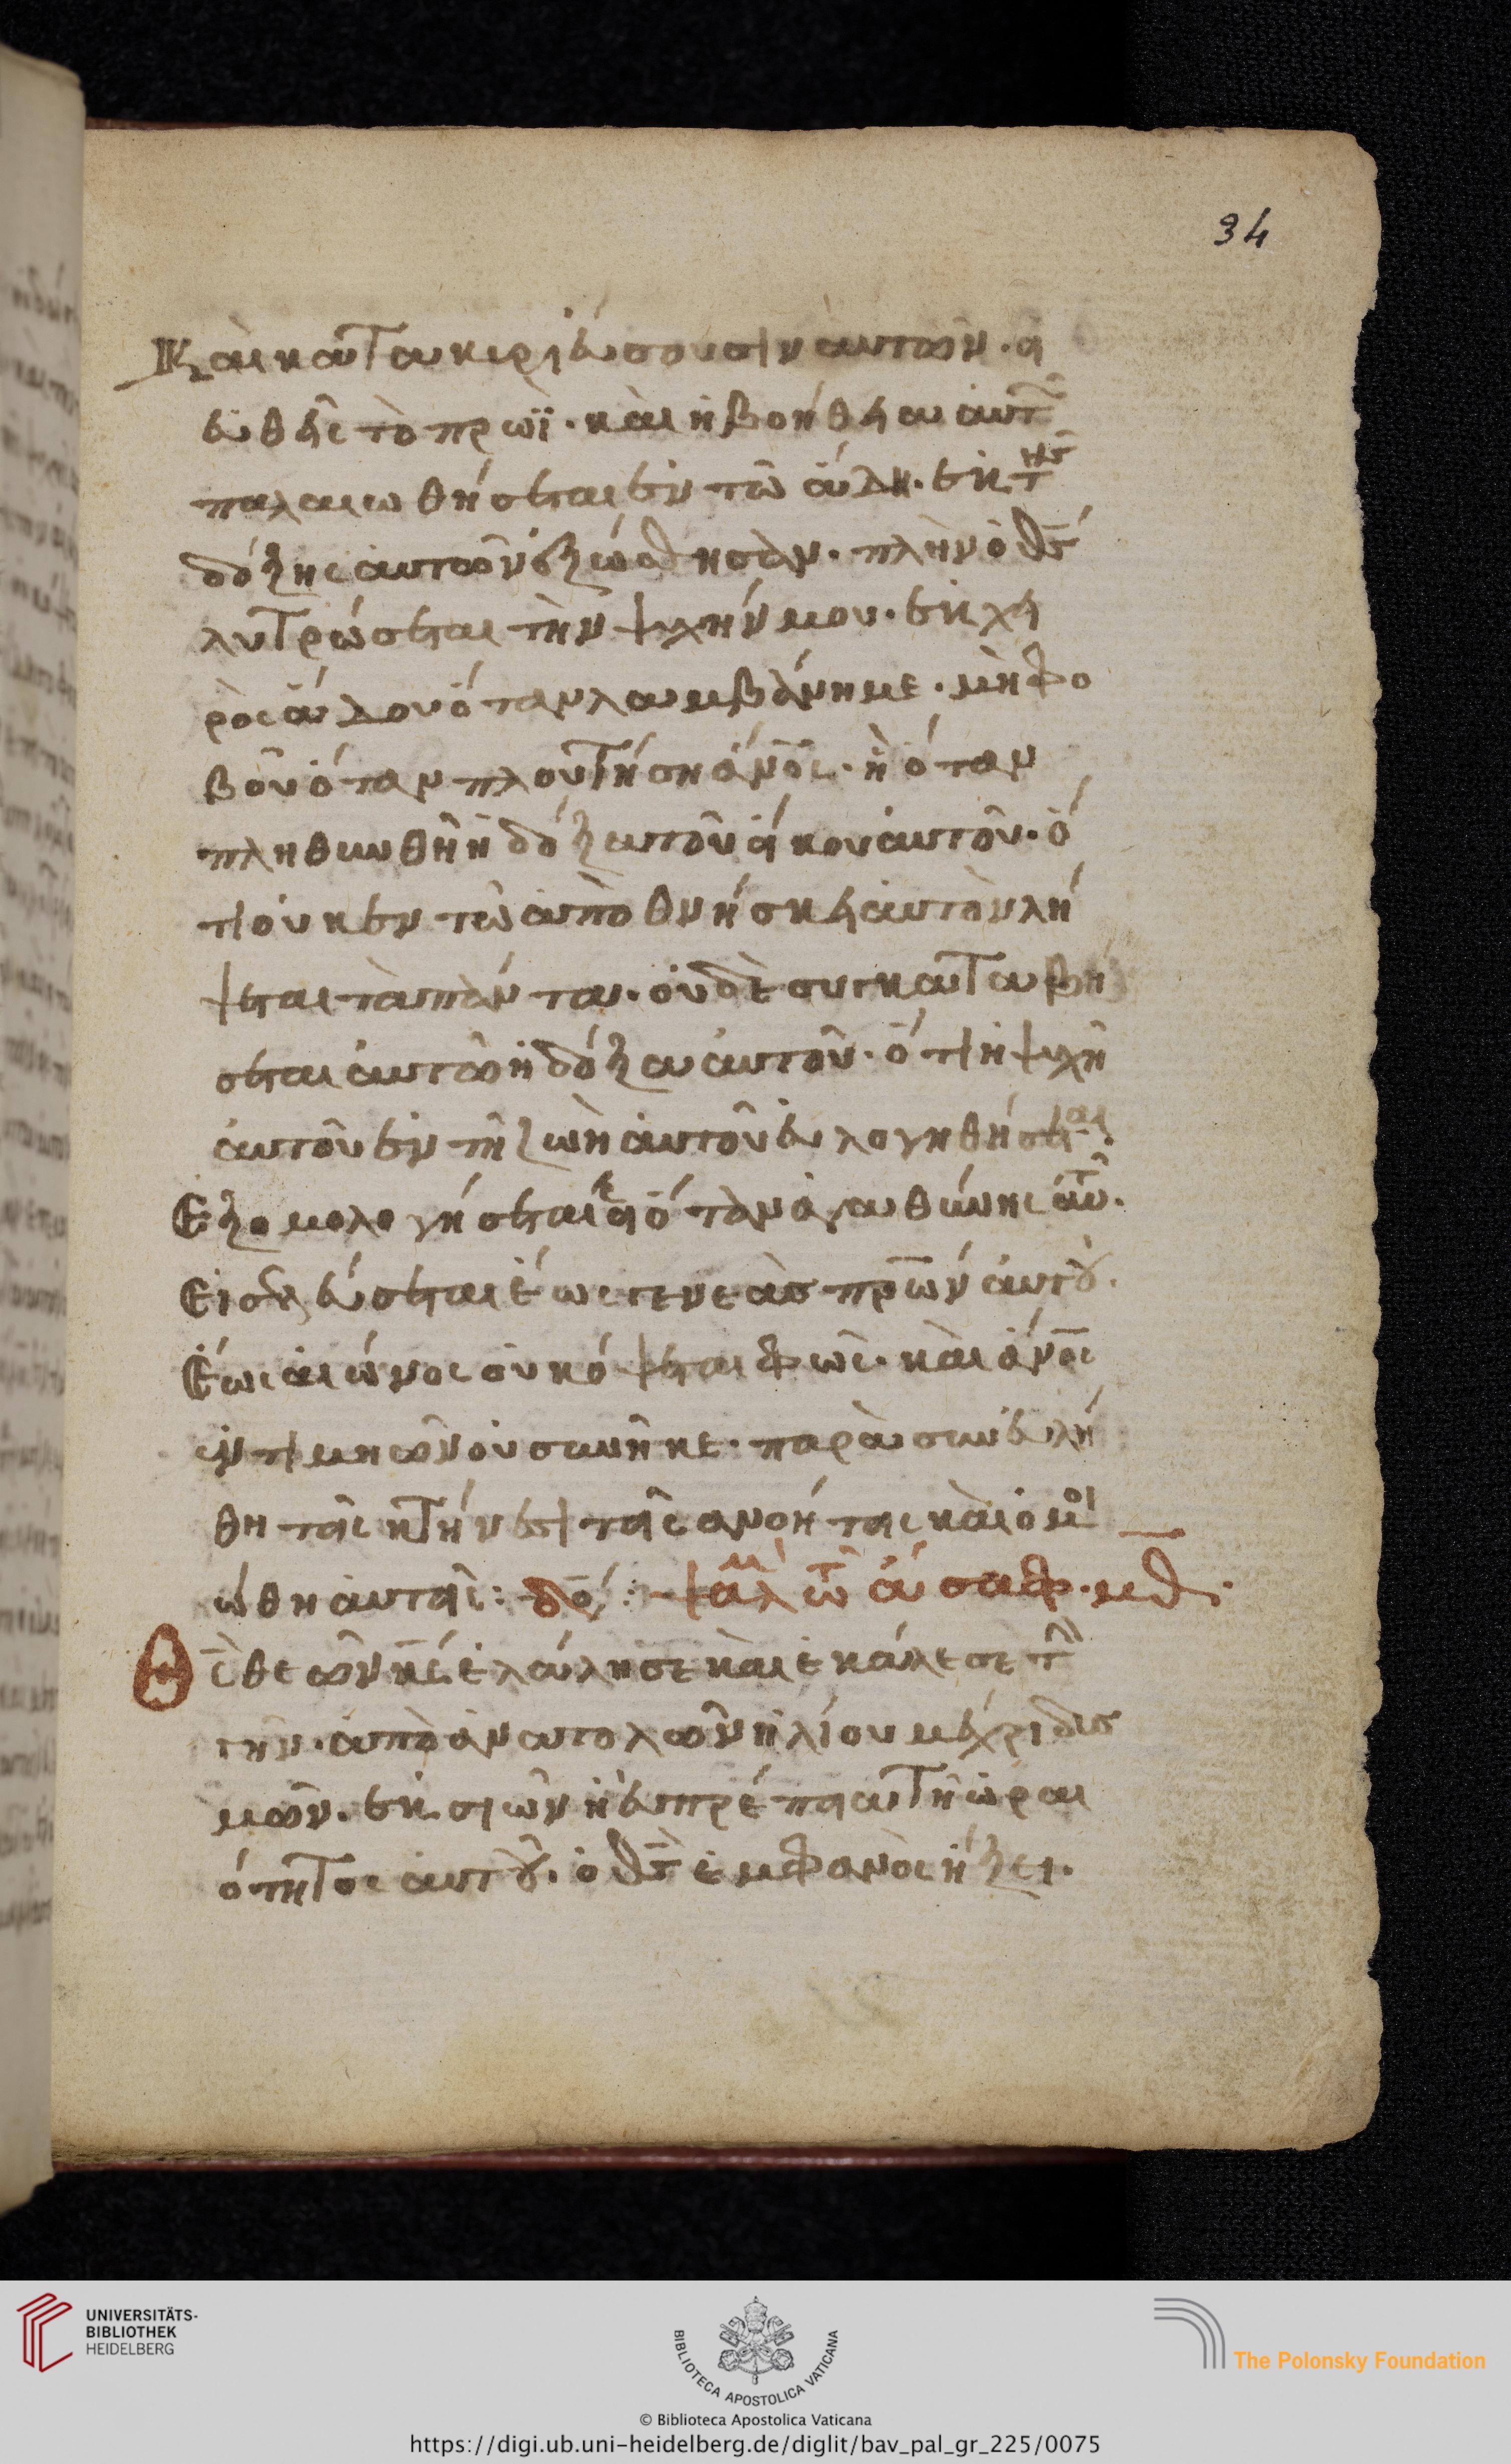 34
Καὶ κατακυριεύσουσιν αὐτῶν · οἱ
εὐθεῖς τὸ πρωῒ · καὶ ἡ βοήθεια αὐτῶν
παλαιωθήσεται ἐν τῶ ἅδη · ἐκ τῆς
δόξης αὐτῶν ἐξώσθησαν · πλὴν ὁ θς
λυτρώσεται τὴν ψυχήν μου · ἐκ χει
ρὸς ἅδου ὅταν λαμβάνη με · μὴ φο
βοῦ ὅταν πλουτήση ἄνος · ἢ ὅταν
πληθυνθῆ ἡ δόξα τοῦ οἴκου αὐτοῦ · ὅ
τι οὐκ ἐν τῶ ἀποθνήσκειν αὐτὸν λή
ψεται τὰ πάντα · οὐδὲ συγκαταβή
σεται αὐτῶ ἡ δόξα αὐτοῦ · ὅτι ἡ ψυχὴ
αὐτοῦ ἐν τῆ ζωῆ αὐτοῦ εὐλογηθήσεται :
Ἐξομολογήσεταί σοι ὅταν ἀγαθύνης αὐτῶ ·
Εἰσελεύσεται ἕως γενεᾶς πρων αὐτοῦ ·
Ἕως αἰῶνος οὐκ ὄψεται φῶς · καὶ ἄνος
ἐν τιμῆ ὢν οὐ συνῆκε · παρασυνεβλή
θη τοῖς κτήνεσι τοῖς ἀνοήτοις καὶ ὁμοι
ώθη αὐτοῖς : δό : ψαλμ τῶ ἀσάφ · μθ ·
Θς θεῶν κς ἐλάλησε καὶ ἐκάλεσε τὴν
γῆν · ἀπὸ ἀνατολῶν ἡλίου μέχρι δυσ
μῶν · ἐκ σιὼν ἡ εὐπρέπεια τῆς ὡραι
ότητος αὐτοῦ · ὁ θς ἐμφανῶς ἥξει ·
UNIVERSITÄTS-
BIBLIOTHEK
HEIDELBERG
BIBLIOTECA APOSTOLICA VATICANA
The Polonsky Foundation
© Biblioteca Apostolica Vaticana
https://digi.ub.uni-heidelberg.de/diglit/bav_pal_gr_225/0075